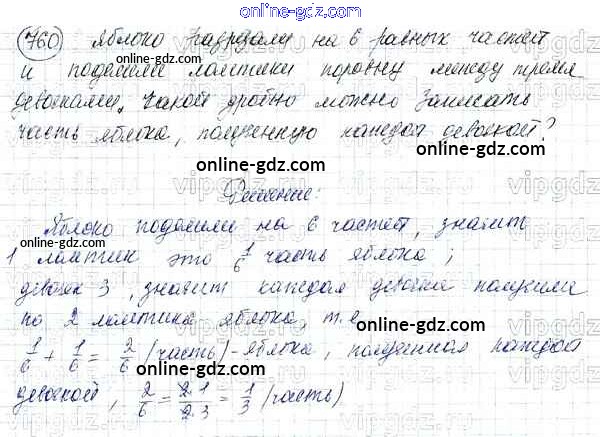 online-gdz.com
760 Яблоко разрезали на 6 равных частей
и поделили ломтики поровну между тремя
online-gdz.com
девочками. Какой дробью можно записать
часть яблока, полученную каждой девочкой?
online-gdz.com
Решение:
Яблоко поделили на 6 частей, значит
online-gdz.com
1 ломтик это 1/6 часть яблока;
девочек 3, значит каждая девочка получила
по 2 ломтика яблока, т.е.
online-gdz.com
1/6 + 1/6 = 2/6 (часть) - яблока, полученная каждой
девочкой, 2/6 = 2·1/2·3 = 1/3 (часть)
online-gdz.com